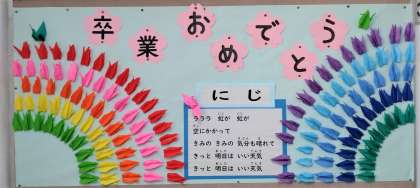 卒業おめでとう
にじ
ラララ 虹が 虹が
空にかかって
きみの きみの 気分も晴れて
きっと 明日は いい天気
きっと 明日は いい天気